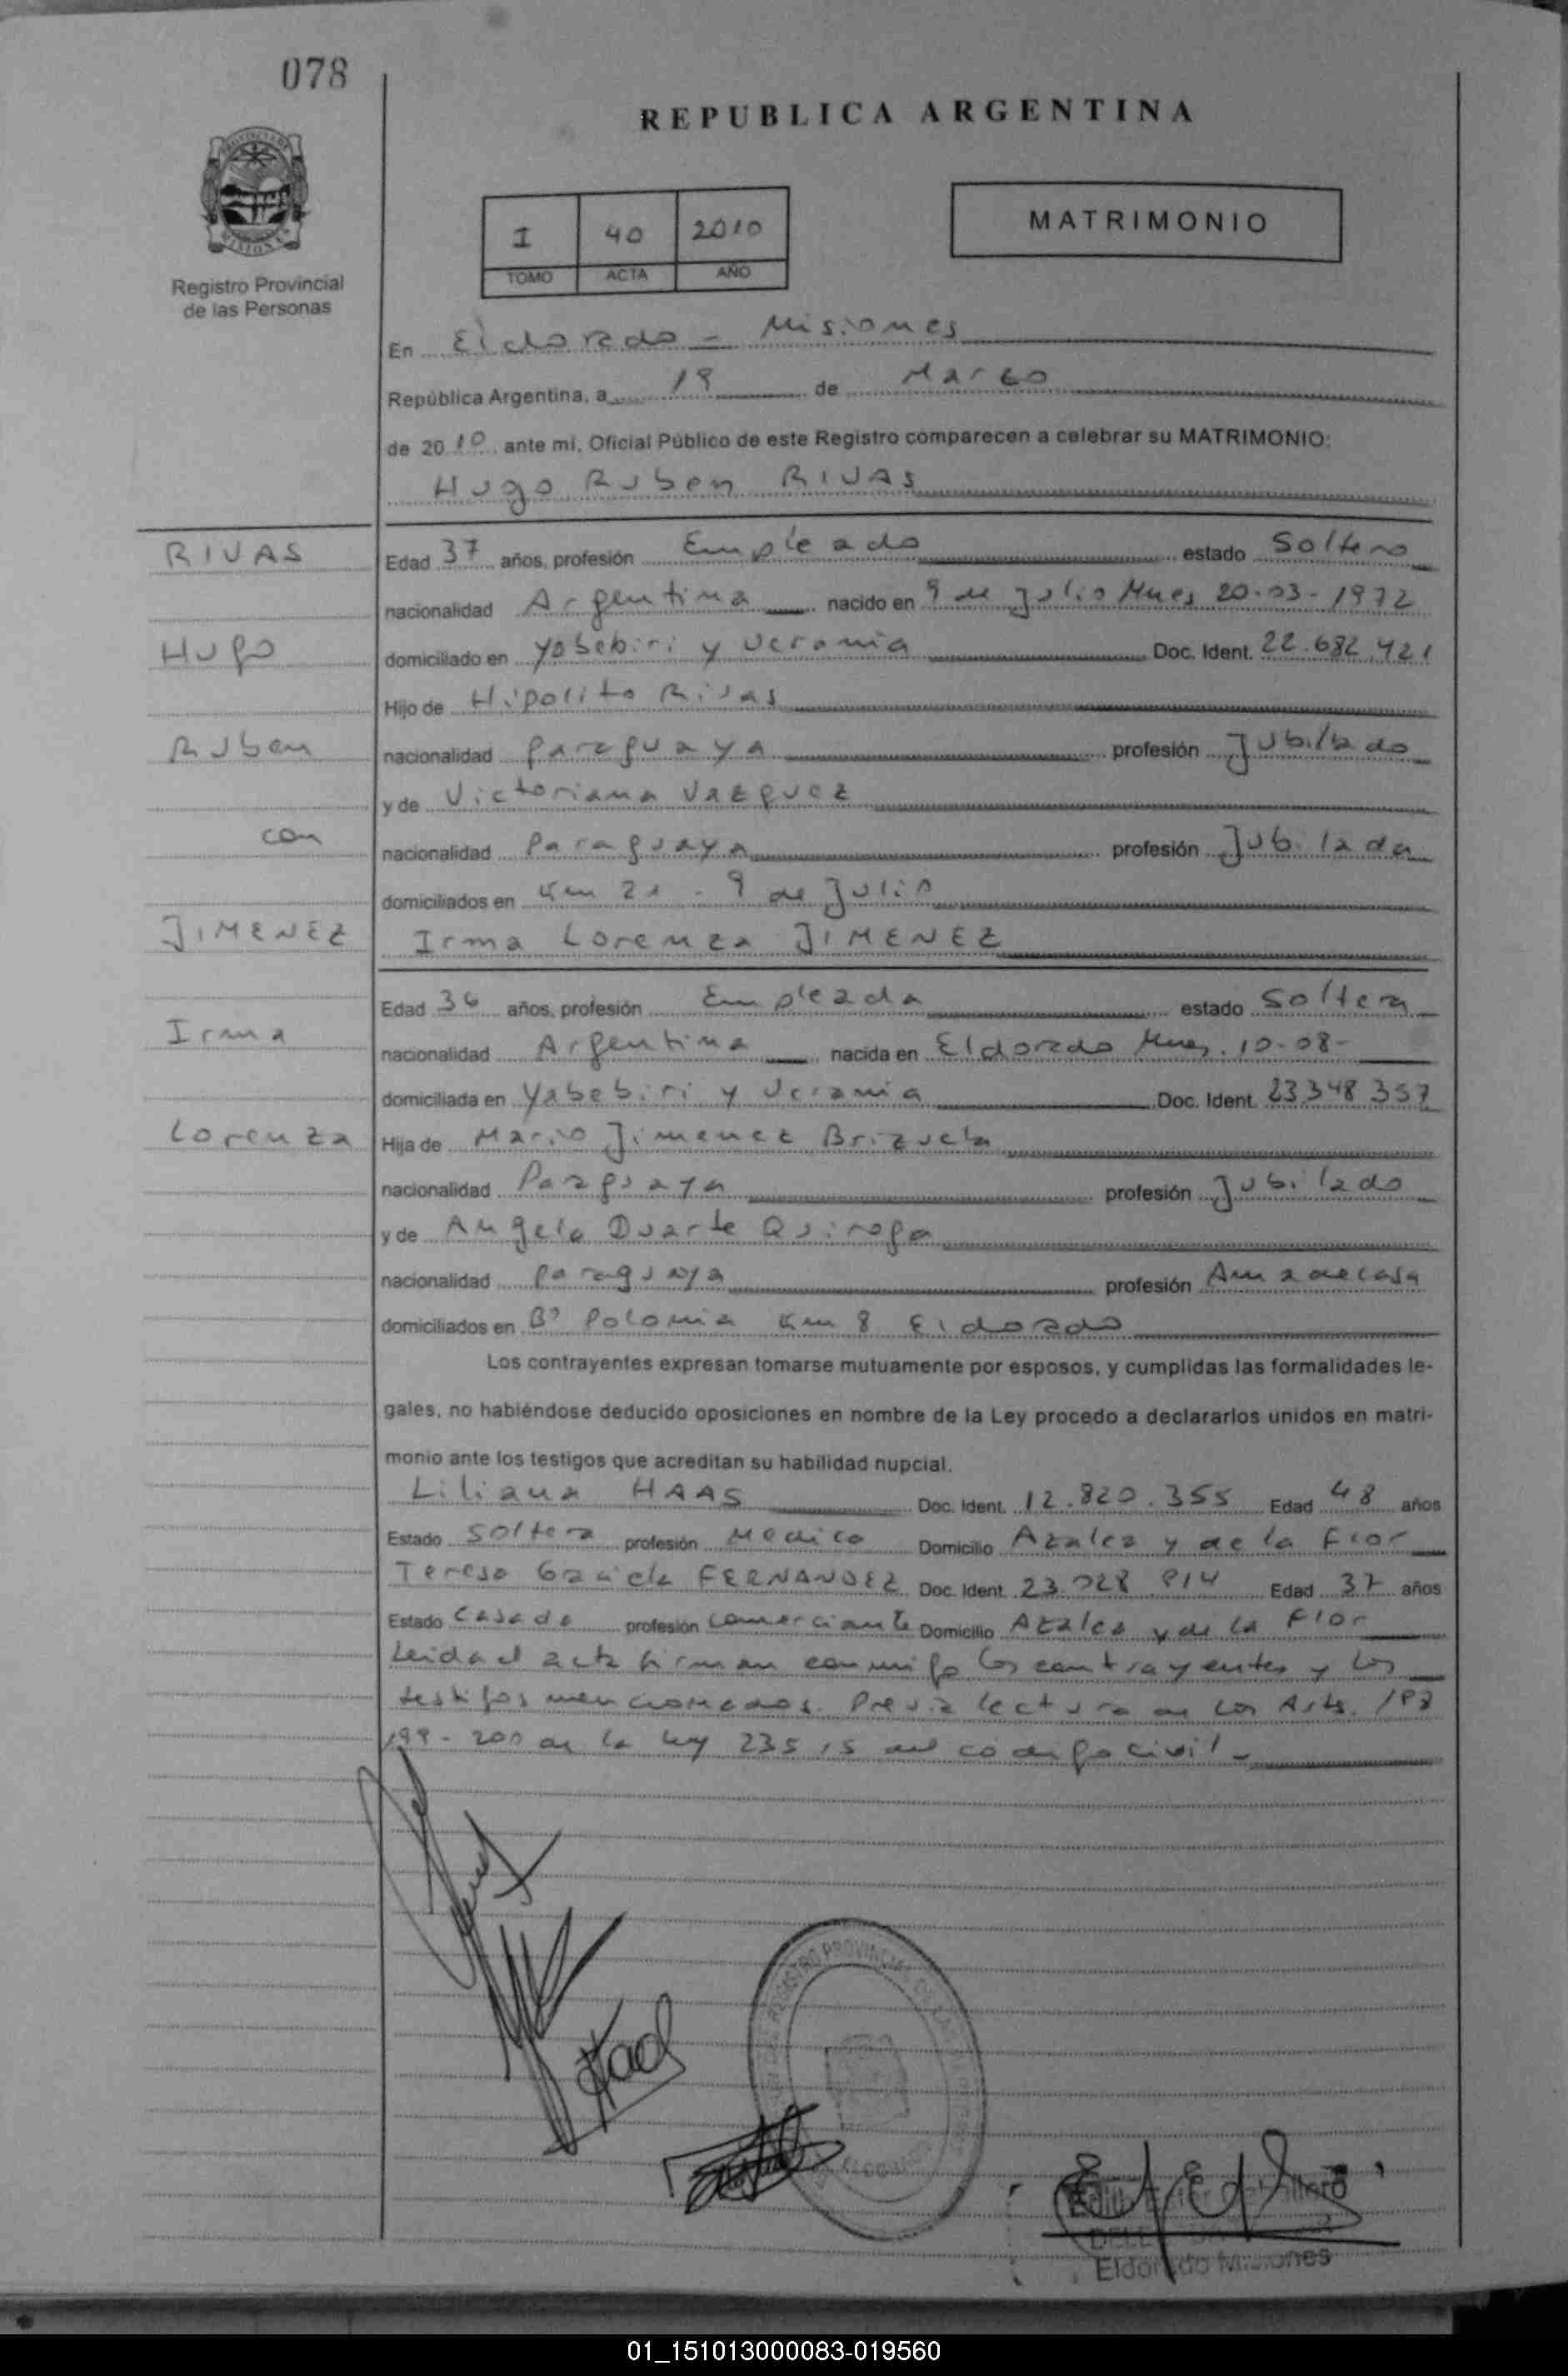 078
REPUBLICA ARGENTINA
PROVINCIA DE
MISIONES
Registro Provincial
de las Personas
I 40 2010
TOMO ACTA AÑO
MATRIMONIO
En Eldorado - Misiones
República Argentina, a 19 de Marzo
de 2010 ante mí, Oficial Público de este Registro comparecen a celebrar su MATRIMONIO:
Hugo Ruben RIVAS
RIVAS
Edad 37 años, profesión Empleado estado Soltero
nacionalidad Argentina nacido en 9 de Julio Mnes 20-03-1972
Hugo
domiciliado en Yabebiri y Ucrania Doc. Ident. 22.682.421
Hijo de Hipolito Rivas
Ruben
nacionalidad Paraguaya profesión Jubilado
y de Victoriana Vazquez
con
nacionalidad Paraguaya profesión Jubilada
domiciliados en Km 21 - 9 de Julio
JIMENEZ
Irma Lorenza JIMENEZ
Edad 36 años, profesión Empleada estado Soltera
Irma
nacionalidad Argentina nacida en Eldorado Mnes. 10-08-
domiciliada en Yabebiri y Ucrania Doc. Ident. 23348357
Lorenza
Hija de Mario Jimenez Brizuela
nacionalidad Paraguaya profesión Jubilado
y de Angela Duarte Quiroga
nacionalidad Paraguaya profesión Ama de casa
domiciliados en Bº Polonia Km 8 Eldorado
Los contrayentes expresan tomarse mutuamente por esposos, y cumplidas las formalidades le-
gales, no habiéndose deducido oposiciones en nombre de la Ley procedo a declararlos unidos en matri-
monio ante los testigos que acreditan su habilidad nupcial.
Liliana HAAS Doc. Ident. 12.820.355 Edad 48 años
Estado Soltera profesión Medico Domicilio Azalea y de la Flor
Teresa Graciela FERNANDEZ Doc. Ident. 23.028 914 Edad 37 años
Estado Casada profesión Comerciante Domicilio Azalea y de la Flor
Leida el acta firman conmigo los contrayentes y los
testigos mencionados. Previa lectura de los Arts. 198
199-200 de la Ley 23515 del código civil-
REGISTRO PROVINCIAL DE LAS
Eldorado Misiones
01_151013000083-019560